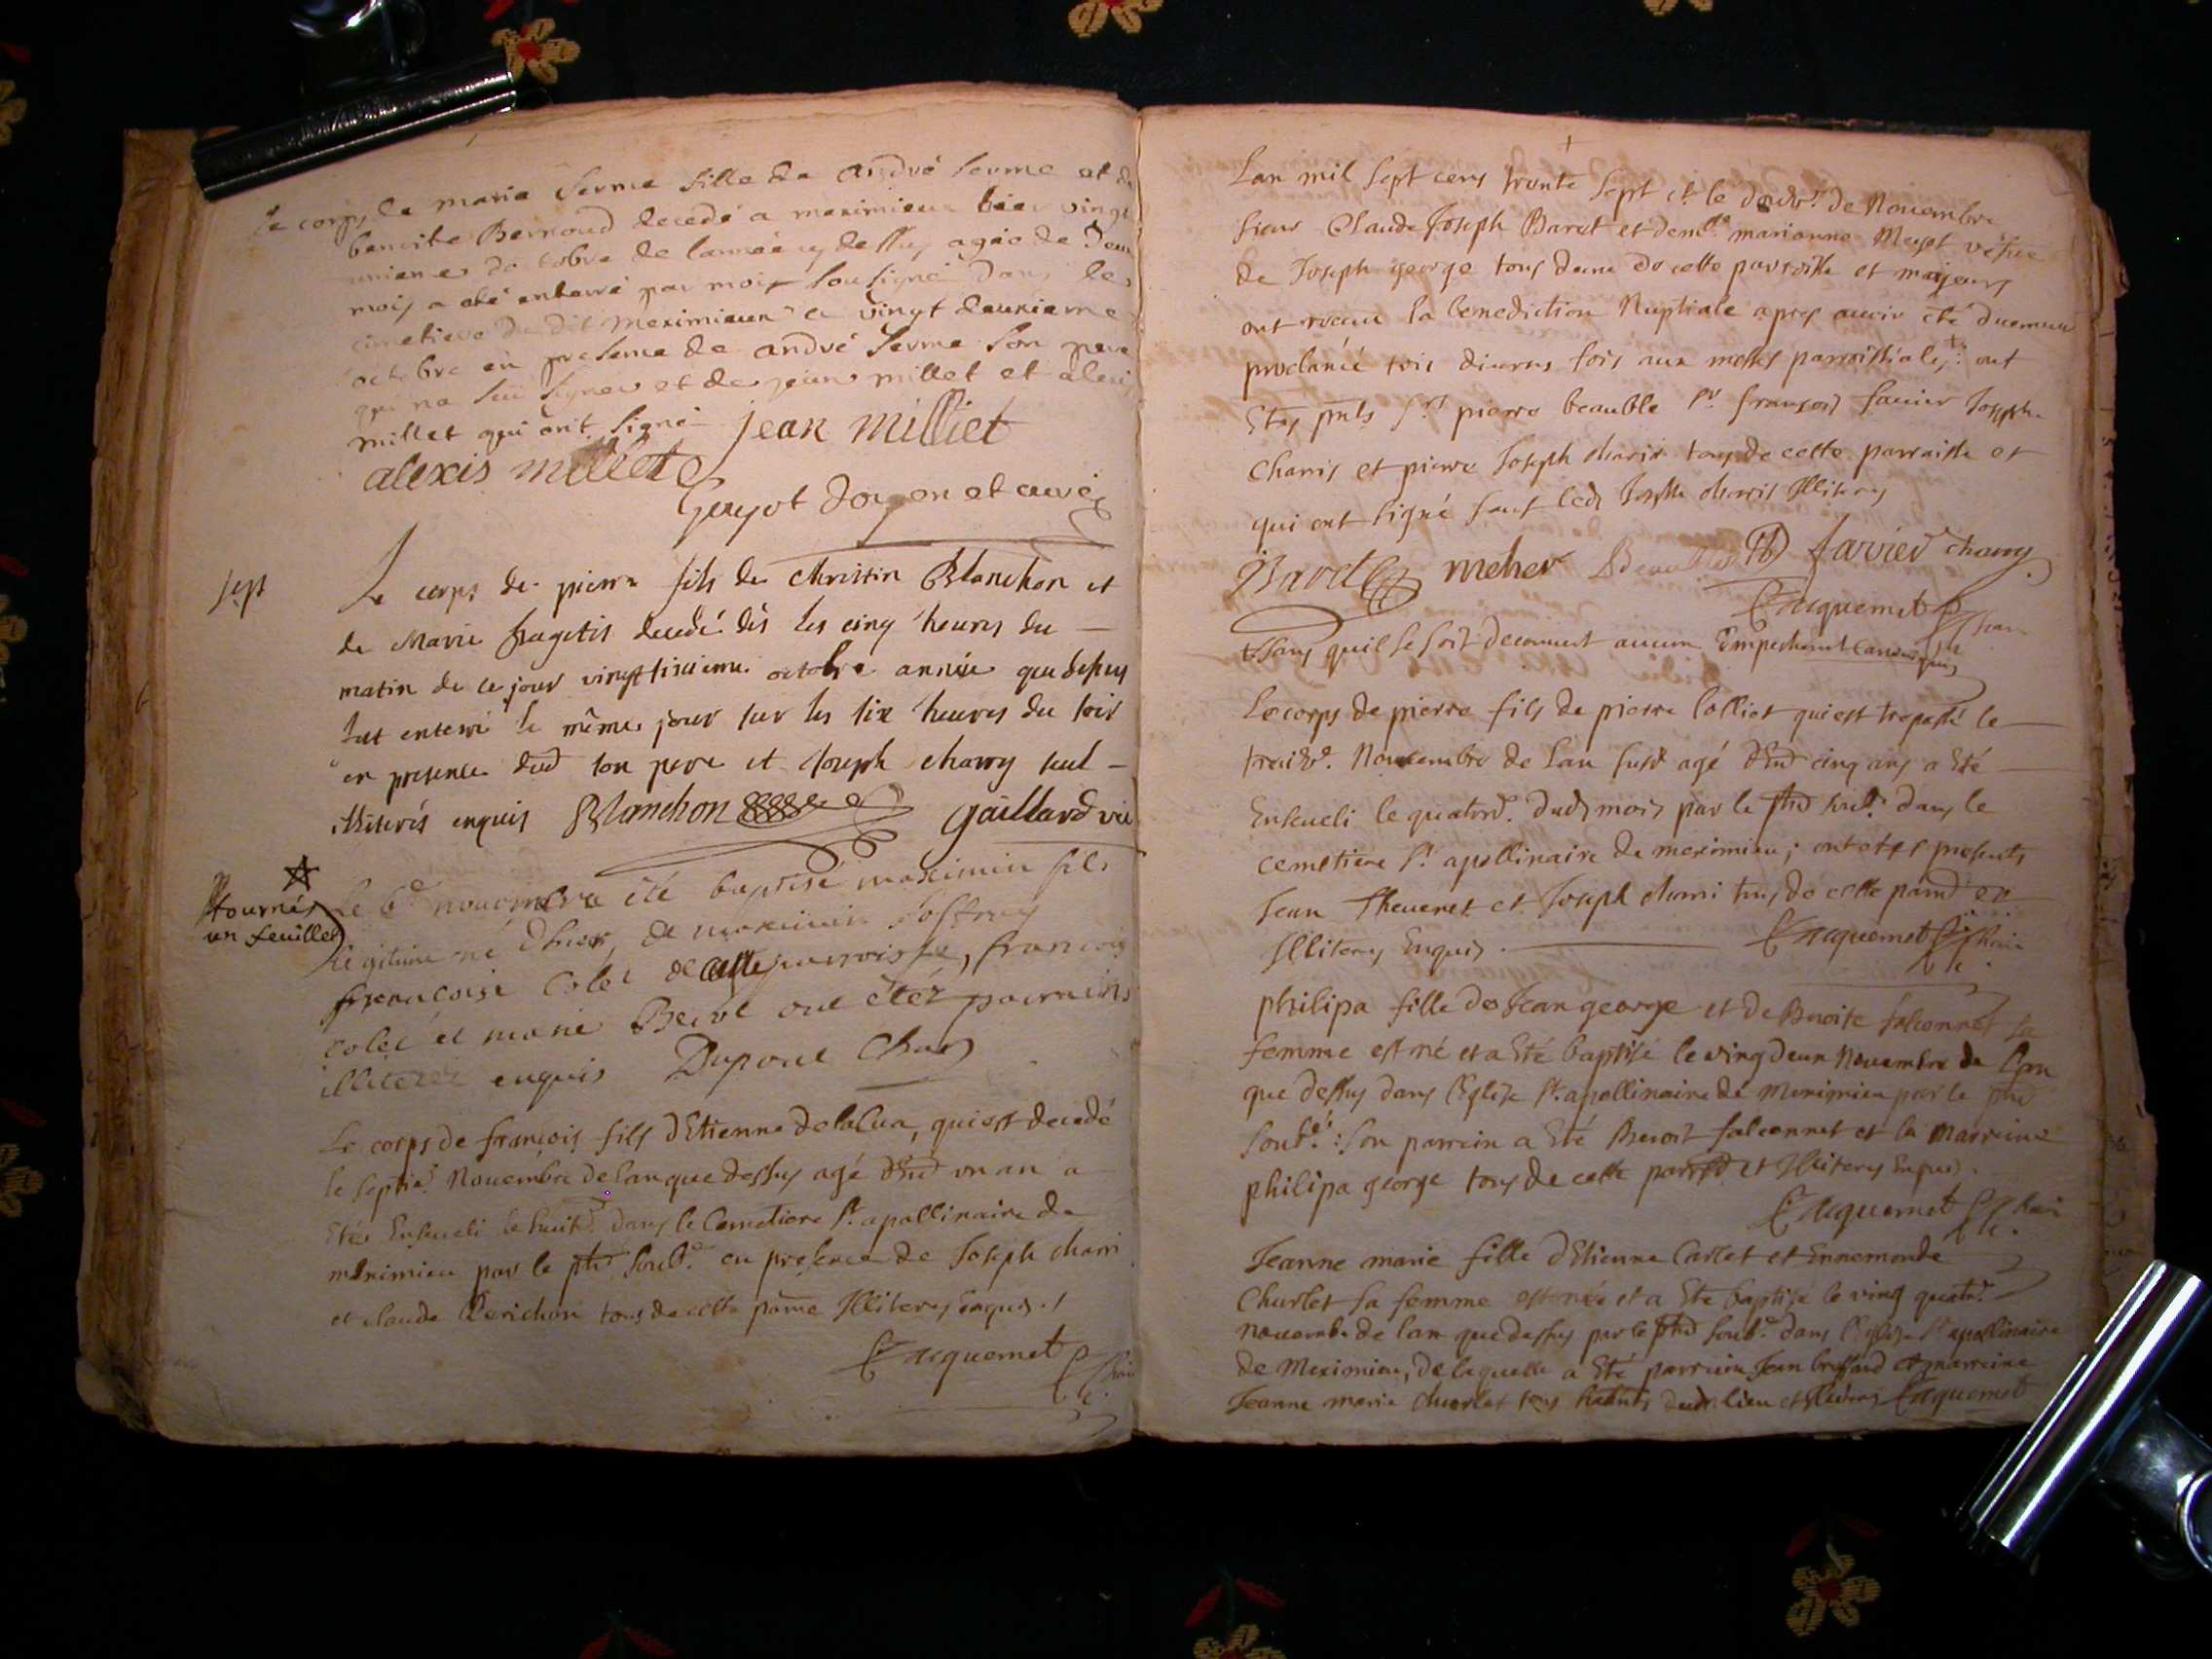 le corps de maria serme fille de andré serme et de
benoite Bernoud decedé a meximieux hier vingt
unieme doctobre de lannée cy dessus agée de deux
mois a été enterré par moi soussigné dans le
cimetiere du dit meximieux ce vingt deuxieme
octobre en presence de andré serme son pere
qui na sui signer et de jean millet et alexis
millet qui ont signé jean milliet
alexis milliet
Guyot doyen et curé
sept
Le corps de pierre fils de christin Blanchon et
de Marie fragetis decedé dès les cinq heures du
matin de ce jour vingt sixieme octobre année que dessus
fut enterré le même jour sur les six heures du soir
en presence dud son pere et Joseph charry seul
illiterés enquis Blanchon gaillard vic
tournés
un feuillet
Le 6e novembre a été baptisé maximin fils
legitime né d'hier, de maximin
francoise Colet de cette parroisse, francois
colet et marie ont étéz parrains
illiterez enquis Dupont Chan
Le corps de francois fils dEtienne delaCua, qui est decedé
le septie. Novembre de lan que dessus agé d'Env un an a
Eté Enseueli le huit.e dans le Cemetiere St. apollinaire de
meximieu par le ptre soub.e en presence de Joseph charri
et claude Perichon tous de cette parroi Illiteres Enquis.
Escquemet
Lan mil sept cens trente sept et le douz.e de Novembre
sieur Claude Joseph Baret et dem.lle marianne Meyet vesve
de Joseph george tous deux de cette parroisse et majeurs
ont receu la benediction Nuptiale apres auoir été duement
proclamé trois diuerses fois aux messes parroissiales: ont
Etés pnts Sr. pierre beauble Sr. francois sauier Joseph
Charri et pierre Joseph charri tous de cette parroisse et
qui ont signé sauf led Joseph charri Illiteres
Baret meher Beauble favier charry
Escquemet
sans quil se soit decouuert aucun Empechement canonique
Le corps de pierre fils de pierre lolliet qui est trepassé le
treiz.e Nouembre de lan susd agé d'Env cinq ans a Eté
Enseueli le quatorz.e dud mois par le ptre soub.e dans le
cemetiere St. apollinaire de meximieu; ont etes presents
Jean Theuenet et Joseph charri tous de cette parroi et
Illiteres Enquis. Escquemet
philipa fille de Jean george et de Benoite falconnet sa
femme est né et a Eté baptisé le ving deux Nouembre de lan
que dessus dans l'Eglise St. apollinaire de Meximieu par le ptre
soub.é: son parrein a Eté Benoit falconnet et la Marreine
philipa george tous de cette parroi et Illiteres Enquis.
Escquemet
Jeanne marie fille dEtienne Carlet et Ennemonde
Churlet sa femme est née et a Eté baptisé le ving quatr.e
nouembre de lan que dessus par le ptre soub.e dans l'Eglise St apollinaire
de Meximieu, de laquelle a Eté parrein Jean bressand et marreine
Jeanne marie churlet tous habitants dud lieu et Illiteres Escquemet